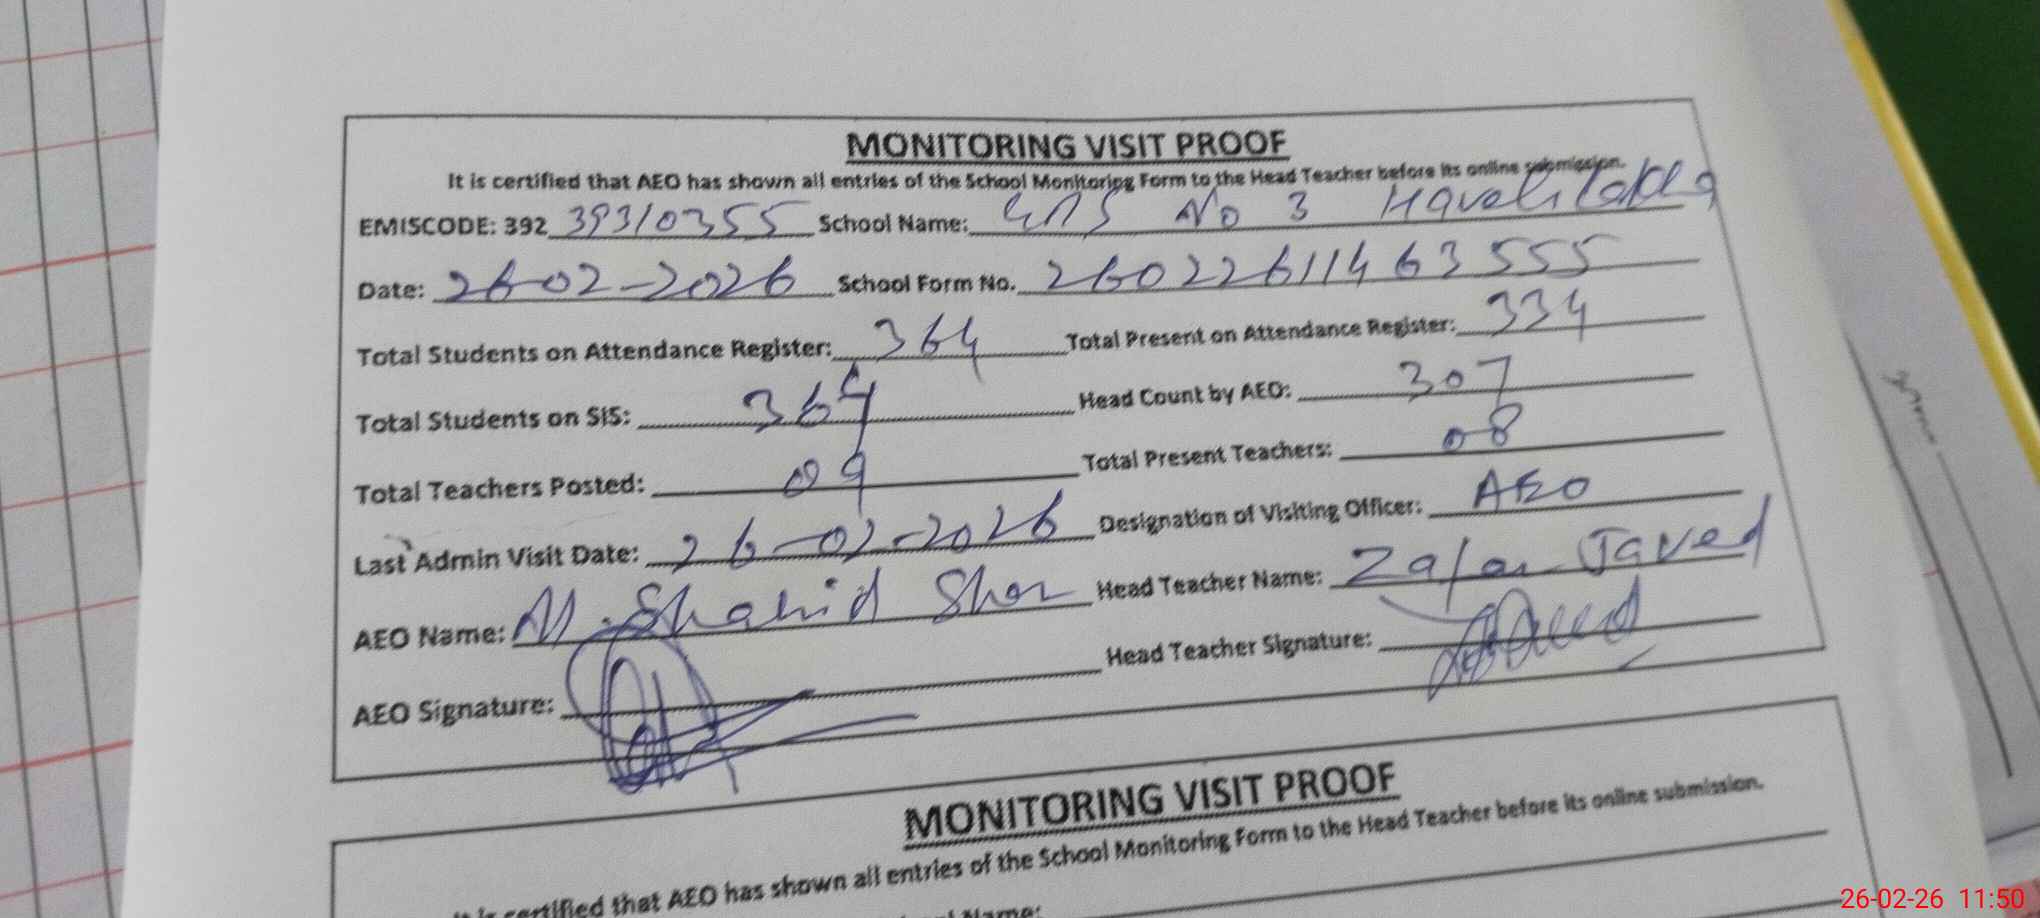 MONITORING VISIT PROOF
It is certified that AEO has shown all entries of the School Monitoring Form to the Head Teacher before its online submission.
EMISCODE: 392 39310355 School Name: GPS No 3 Haveli Lakha
Date: 26-02-2026 School Form No. 26022611463555
Total Students on Attendance Register: 364 Total Present on Attendance Register: 334
Total Students on SIS: 364 Head Count by AEO: 307
Total Teachers Posted: 09 Total Present Teachers: 08
Last Admin Visit Date: 26-02-2026 Designation of Visiting Officer: AEO
AEO Name: M. Shahid Head Teacher Name: Javed
AEO Signature: Head Teacher Signature:
MONITORING VISIT PROOF
It is certified that AEO has shown all entries of the School Monitoring Form to the Head Teacher before its online submission.
Name:
26-02-26 11:50